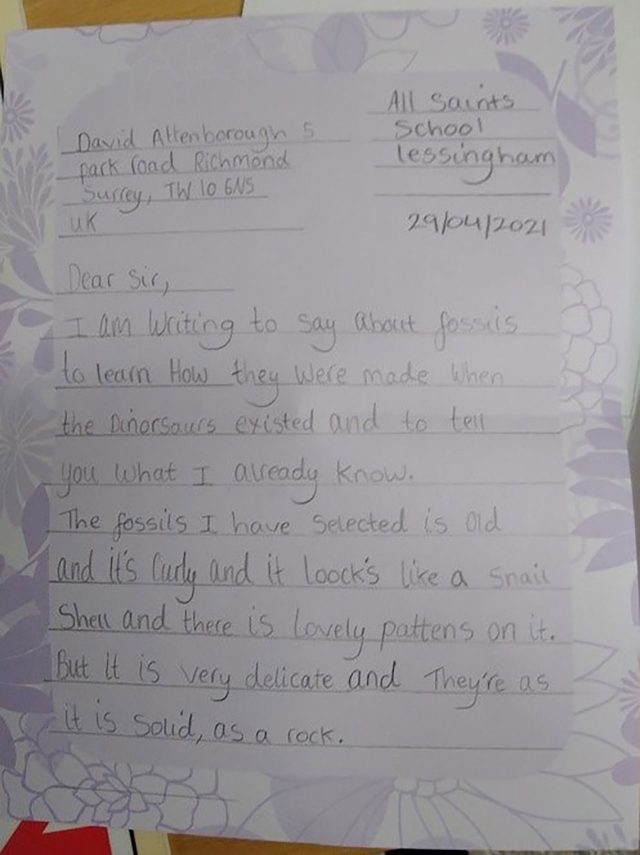 All Saints
School
lessingham
29/04/2021
David Attenborough 5
park road Richmond
Surrey, TW10 6NS
UK
Dear Sir,
I am Writing to say about fossils
to learn How they Were made When
the Dinorsaurs existed and to tell
you What I already Know.
The fossils I have Selected is Old
and it's Curly and it loock's like a snail
Shell and there is lovely pattens on it.
But it is very delicate and They're as
it is Solid, as a rock.